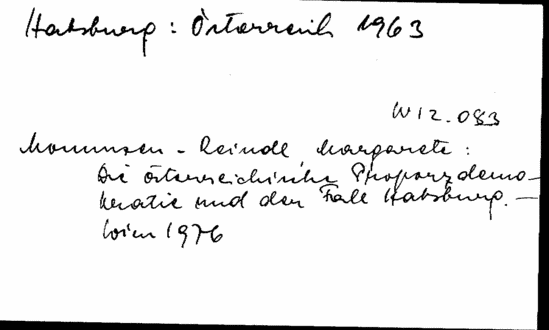 Habsburg : Österreich 1963
W 12.083
Mommsen - Reindl Margarete :
Die österreichische Proporzdemo-
kratie und der Fall Habsburg. -
Wien 1976